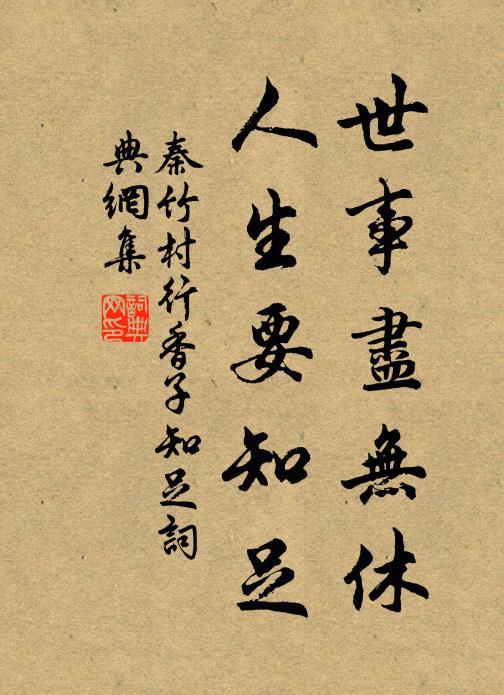 世事盡無休
人生要知足
秦竹村行香子知足詞
典網集
詞典網印